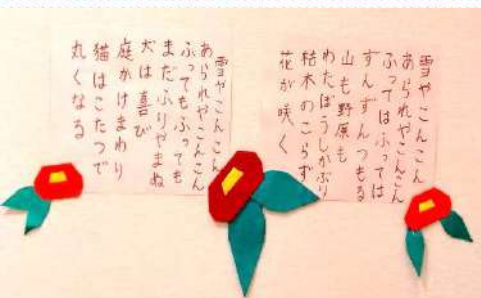 雪やこんこん
あられやこんこん
ふってはふっては
ずんずんつもる
山も野原も
わたぼうしかぶり
枯木のこらず
花が咲く
雪やこんこん
あられやこんこん
ふってもふっても
まだふりやまぬ
犬は喜び
庭かけまわり
猫はこたつで
丸くなる